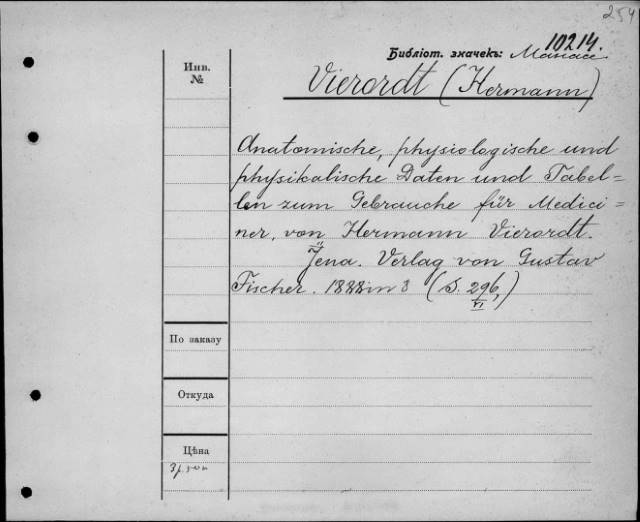 254
10214.
Библіот. значекъ:
Инв.
№
Vierordt (Hermann)
Anatomische, physiologische und
physikalische Daten und Tabel=
len zum Gebrauche für Medici=
ner, von Hermann Vierordt.
Jena. Verlag von Gustav
Fischer. 1888 in 8 (S. 296,)
VI
По заказу
Откуда
Цѣна